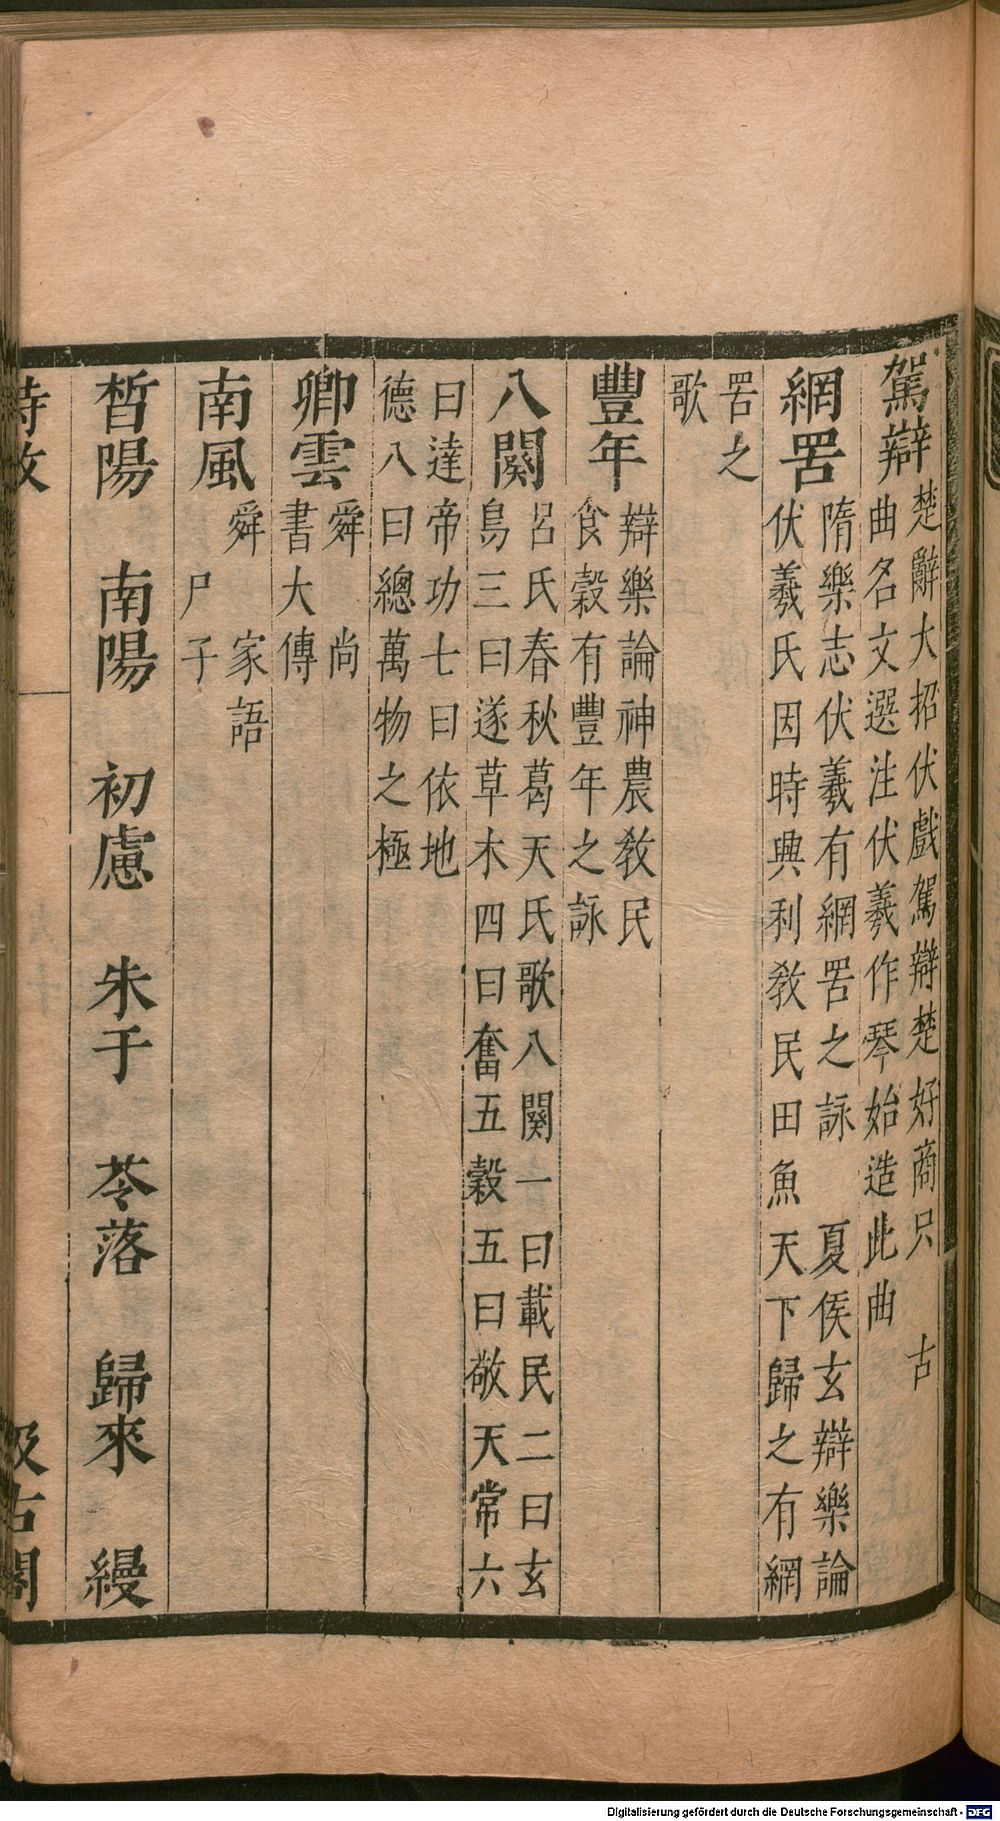 駕辯楚辭大招伏戲駕辯楚好商只　古
曲名文選注伏羲作琴始造此曲
網罟隋樂志伏羲有網罟之詠　夏侯玄辯樂論
伏羲氏因時興利教民田魚天下歸之有網
罟之
歌
豐年辯樂論神農教民
食穀有豐年之詠
八闋呂氏春秋葛天氏歌八闋一曰載民二曰玄
鳥三曰遂草木四曰奮五穀五曰敬天常六
曰達帝功七曰依地
德八曰總萬物之極
卿雲舜　尚
書大傳
南風舜　家語
尸子
晳陽　南陽　初慮　朱于　苓落　歸來　縵
詩攷
汲古閣
Digitalisierung gefördert durch die Deutsche Forschungsgemeinschaft - DFG